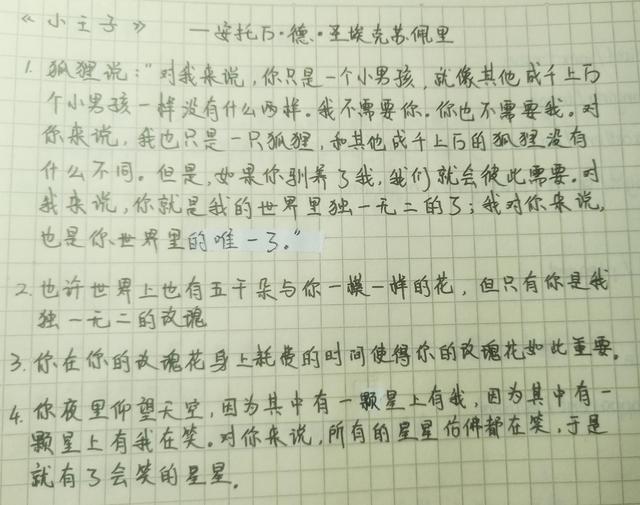 《小王子》 —安托万·德·圣埃克苏佩里
1. 狐狸说:"对我来说,你只是一个小男孩,就像其他成千上万
个小男孩一样没有什么两样。我不需要你。你也不需要我。对
你来说,我也只是一只狐狸,和其他成千上万的狐狸没有
什么不同。但是,如果你驯养了我,我们就会彼此需要。对
我来说,你就是我的世界里独一无二的了;我对你来说,
也是你世界里的唯一了。"
2. 也许世界上也有五千朵与你一模一样的花,但只有你是我
独一无二的玫瑰
3. 你在你的玫瑰花身上耗费的时间使得你的玫瑰花如此重要。
4. 你夜里仰望天空,因为其中有一颗星上有我,因为其中有一
颗星上有我在笑。对你来说,所有的星星仿佛都在笑,于是
就有了会笑的星星。